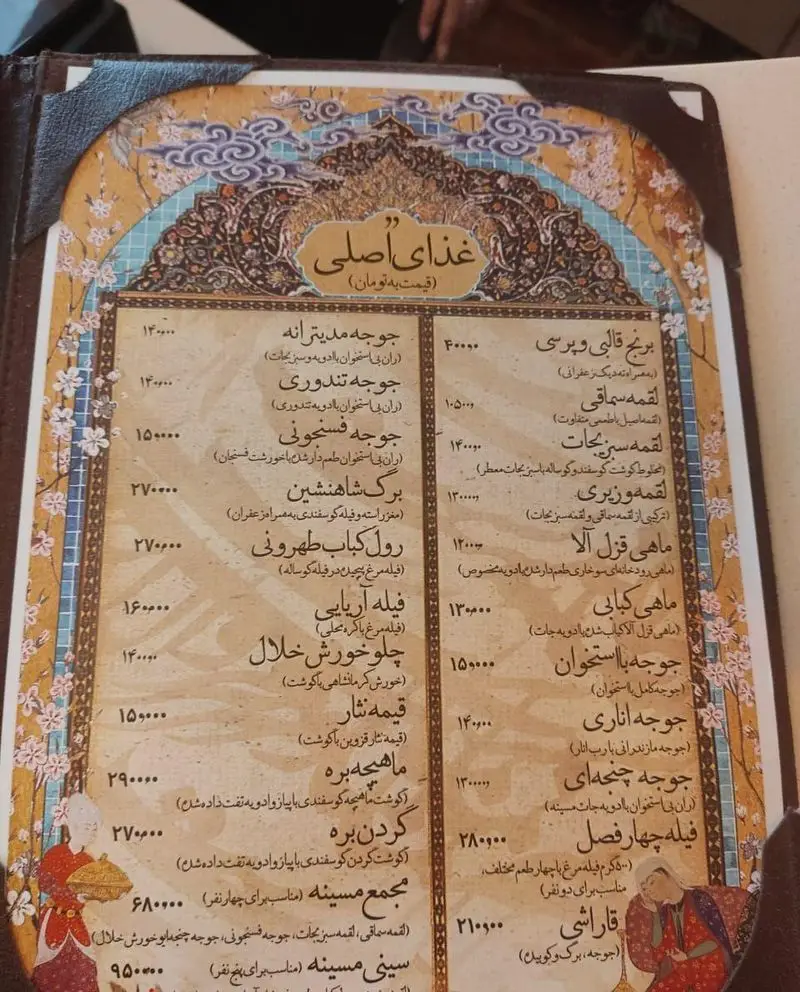 غذای اصلی
(قیمت به تومان)
برنج قالبی و پرسی ۴۰۰۰۰
(به همراه ته دیگ زعفرانی)
لقمه سماقی ۱۰۵۰۰۰
(لقمه اصیل با طعمی متفاوت)
لقمه سبزیجات ۱۴۰۰۰۰
(مخلوط گوشت گوسفند و گوساله با سبزیجات معطر)
لقمه وزیری ۱۳۰۰۰۰
(ترکیبی از لقمه سماقی و لقمه سبزیجات)
ماهی قزل آلا ۱۲۰۰۰۰
(ماهی رودخانه‌ای سوخاری طعم دار شده با ادویه مخصوص)
ماهی کبابی ۱۳۰۰۰۰
(ماهی قزل آلا کباب شده با ادویه جات)
جوجه با استخوان ۱۵۰۰۰۰
(جوجه کامل با استخوان)
جوجه اناری ۱۴۰۰۰۰
(جوجه مازندرانی با رب انار)
جوجه چنجه‌ای ۱۳۰۰۰۰
(ران بی استخوان با ادویه جات مسینه)
فیله چهار فصل ۲۸۰۰۰۰
(۵۰۰ گرم فیله مرغ با چهار طعم مختلف،
مناسب برای دو نفر)
قاراشی ۲۱۰۰۰۰
(جوجه، برگ و کوبیده)
جوجه مدیترانه ۱۴۰۰۰۰
(ران بی استخوان با ادویه و سبزیجات)
جوجه تندوری ۱۴۰۰۰۰
(ران بی استخوان با ادویه تندوری)
جوجه فسنجونی ۱۵۰۰۰۰
(ران بی استخوان طعم دار شده با خورشت فسنجان)
برگ شاهنشین ۲۷۰۰۰۰
(مغز راسته و فیله گوسفندی به همراه زعفران)
رول کباب طهرونی ۲۷۰۰۰۰
(فیله مرغ پیچیده در فیله گوساله)
فیله آریایی ۱۶۰۰۰۰
(فیله مرغ با کره محلی)
چلو خورش خلال ۱۴۰۰۰۰
(خورش کرمانشاهی با گوشت)
قیمه نثار ۱۵۰۰۰۰
(قیمه نثار قزوین با گوشت)
ماهیچه بره ۲۹۰۰۰۰
(گوشت ماهیچه گوسفندی با پیاز و ادویه تفت داده شده)
گردن بره ۲۷۰۰۰۰
(گوشت گردن گوسفندی با پیاز و ادویه تفت داده شده)
مجمع مسینه (مناسب برای چهار نفر) ۶۸۰۰۰۰
(لقمه سماقی، لقمه سبزیجات، جوجه فسنجونی، جوجه چنجه ای و خورش خلال)
سینی مسینه (مناسب برای پنج نفر) ۹۵۰۰۰۰